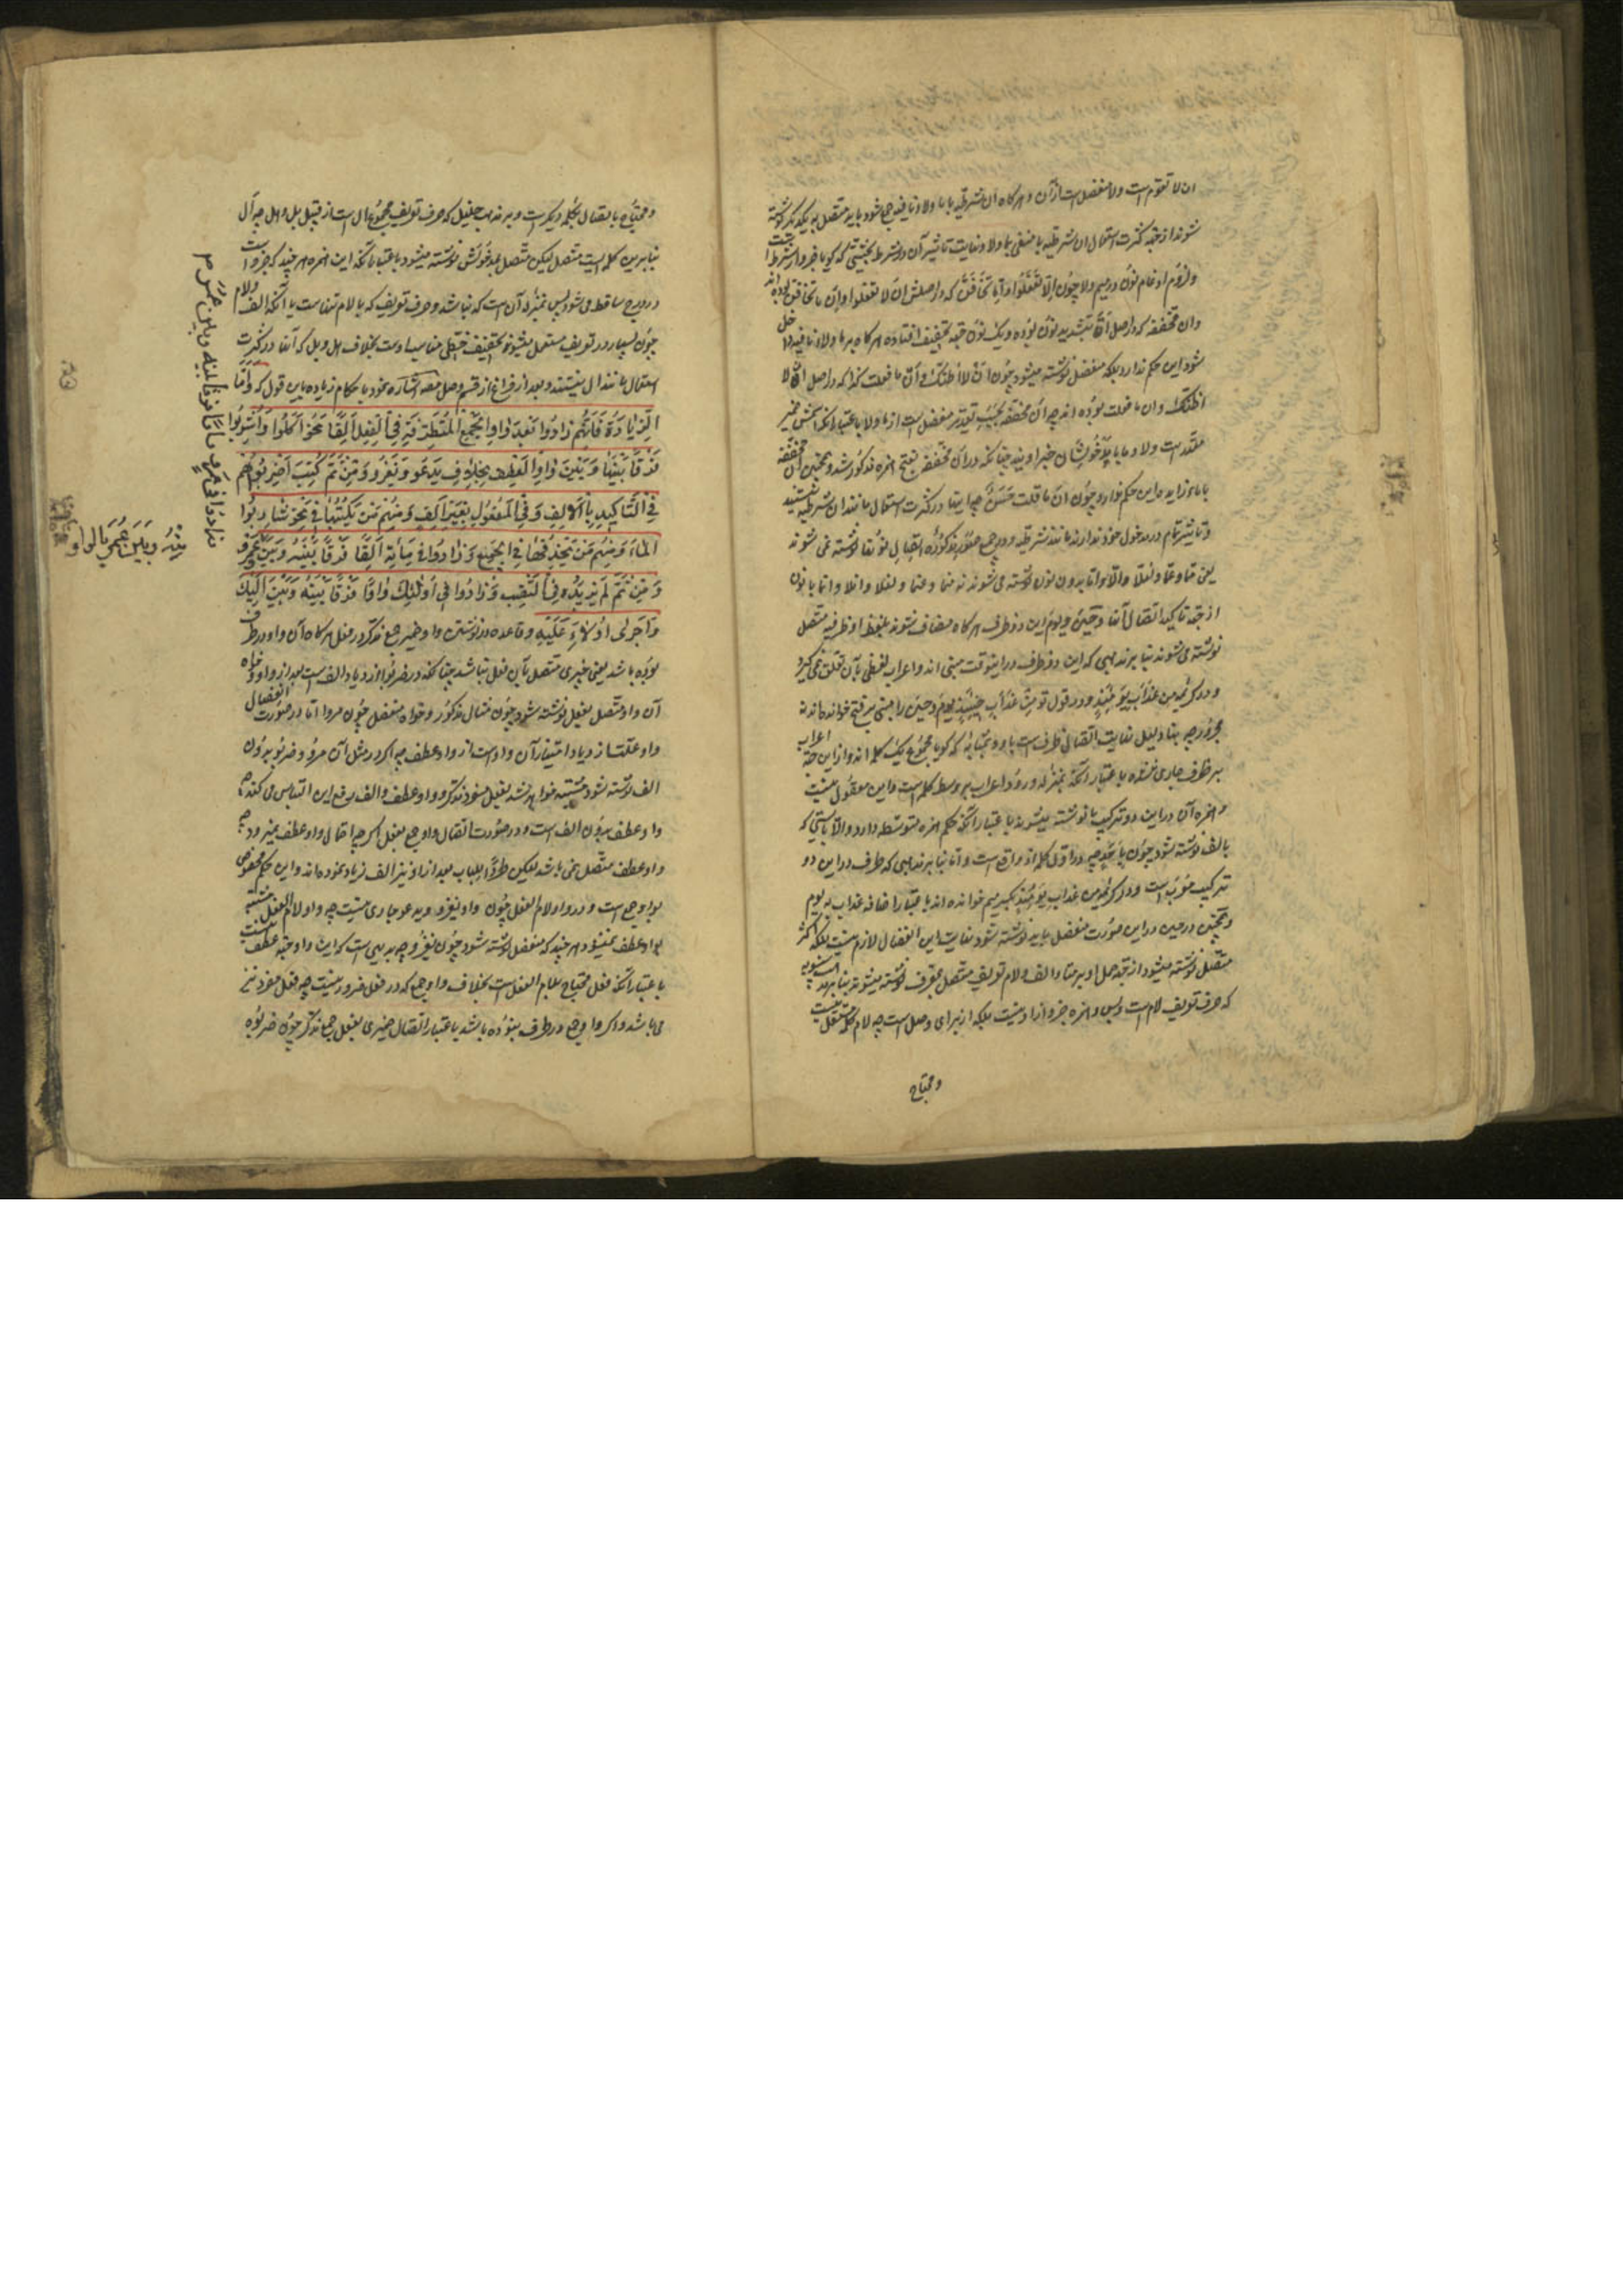 ان لا تقوم است ولا منفصل است از آن و هرگاه ان شرطیه با ما ولا و نافیه جمع شود باید متصل بیکدیگر نوشته
شوند از جهة کثرت استعمال ان شرطیه با منفی بما ولا و نهایت تاثیر آن در شرط بحیثیتی که گویا جزو از شرط است
ولزوم ادغام نون در میم ولا چون الا تفعلوا و اما تخافن که در اصلش ان لا تفعلوا و ان ما تخافن بوده اند
وان مخففه که در اصل انّ بتشدید نون بوده و یک نون جهة تخفیف افتاده هرگاه بر ما ولاء نافیه داخل
شود این حکم ندارد بلکه منفصل نوشته میشود چون ان لا اظنک و ان ما فعلت کذا که در اصل انک لا
اظنک و ان ما فعلت بوده اند چه ان مخففه بحسب تقدیر منفصل است از ما ولا باعتبار آنکه اسمش ضمیر
مقدر است ولا و ما با مدخولشان خبر اویند چنانکه در ان مخففه بفتح همزه مذکور شد و همچنین ان مخففه
با ماء زایده این حکم ندارد چون ان ما قلت حسن چه اینها در کثرت استعمال مانند ان شرطیه نیستند
و تاثیر تام در مدخول خود ندارند مانند شرطیه و در جمیع صور مذکوره اتصال نون آنها نوشته نمی شوند
یعنی مما و عما و لئلا و الا و اما بدون نون نوشته می شوند نه منما و عنما و لئنلا و انلا و انما با نون
از جهة تاکید اتصال آنها و حین و یوم این دو ظرف هرگاه مضاف شوند بلفظ اذ ظرفیه متصل
نوشته می شوند بنابر مذهبی که این دو ظرف در اینوقت مبنی اند و اعراب لفظی بآن تعلق نمی گیرد
و در کریمه من عذاب یومئذ و در قول تو من عذاب حینئذ یوم و حین را مبنی بر فتح خوانده اند نه
مجرور چه بنا دلیل نهایت اتصال ظرف است باذ و بمثابه که گویا مجموع یک کلمه اند و از این جهة اعراب
بر ظرف جاری نشده باعتبار آنکه بمنزله ورود اعراب بر وسط کلمه است و این معقول نیست
و همزه آن در این دو ترکیب بیا نوشته میشوند باعتبار آنکه حکم همزه متوسطه دارد والا بایستی که
بالف نوشته شود چون باحد چه در اول کلمه اذ واقع است و اما بنابر مذهبی که ظرف در این دو
ترکیب معرب است و در کریمه من عذاب یومئذ بکسر میم خوانده اند باعتبار اضافه عذاب به یوم
و همچنین در حین در این صورت منفصل باید نوشته شود نهایت این انفصال لازم نیست بلکه اکثر
متصل نوشته میشود از جهة حمل او بر بنا و الف ولام تعریف متصل بمعرف نوشته میشوند بنابر مذهب سیبویه
که حرف تعریف لام است و بس و همزه جزو از او نیست بلکه از برای وصل است چه لام کلمه مستقل نیست
و محتاج
و محتاج باتصال بکلمه دیگر است و بر مذهب خلیل که حرف تعریف مجموع ال است از قبیل بل و هل چه ال
بنابر این کلمه ایست متصل لیکن متصل بمدخولش نوشته میشود باعتبار آنکه این همزه هر چند که جزو است
در درج ساقط می شود پس بمنزله آن است که نباشد و حرف تعریف که با لام تنها است یا آنکه الف ولام
چون بسیار در تعریف مستعمل میشوند تخفیف خطی مناسب اوست بخلاف هل و بل که آنها در کثرت
استعمال مانند ال نیستند و بعد از فراغ از قسم وصل مصه اشاره نمود باحکام زیاده باین قول که و اما
الزیادة فانهم زادوا بعد واو الجمع المتطرفة فی الفعل الفا نحو اکلوا واشربوا
فرقا بینها و بین واو العطف بخلاف یدعو و یغزو و من ثم کتب اضربوهم
فی التاکید بالالف و فی المفعول بغیر الف و منهم من یکتبها فی نحو شاربوا
الماء و منهم من یحذفها فی الجمیع و زادوا فی مائة الفا فرقا بینه و بین
و من ثم لم یزیدوه فی النصب و زادوا فی اولئک واوا فرقا بینه و بین الیک
و اجری اولاء علیه و قاعده در نوشتن واو ضمیر جمع مذکر در فعل هرگاه آن واو در طرف
بوده باشد یعنی ضمیری متصل بآن فعل نباشد چنانکه در ضربوا ازدیاد الف است بعد از واو خواه
آن واو متصل بفعل نوشته شود چون مثال مذکور و خواه منفصل چون مروا اما در صورت انفصال
واو علت ازدیاد امتیاز آن واو است از واو عطف چه اگر در مثل آن مرو و ضربو بدون
الف نوشته شود مشتبه خواهد شد بفعل مفرد مذکر و واو عطف و الف رفع این التباس می کند چه
واو عطف بدون الف است و در صورت اتصال واو جمع بفعل اگر چه احتمال واو عطف نمیرود چه
واو عطف متصل نمی باشد لیکن طردا للباب بعد از او نیز الف زیاد نموده اند و این حکم مخصوص
بواو جمع است و در واو لام الفعل چون واو یغزو و یدعو جاری نیست چه واو لام الفعل مشتبه
بواو عطف نمیشود هر چند که منفصل نوشته شود چون یغزو چه بدیهی است که این واو جهة عطف نیست
باعتبار آنکه فعل محتاج بلام الفعل است بخلاف واو جمع که در فعل ضرور نیست چه فعل مفرد نیز
می باشد و اگر واو جمع در طرف نبوده باشد باعتبار اتصال ضمیری بفعل جمع مذکر چون ضربوه